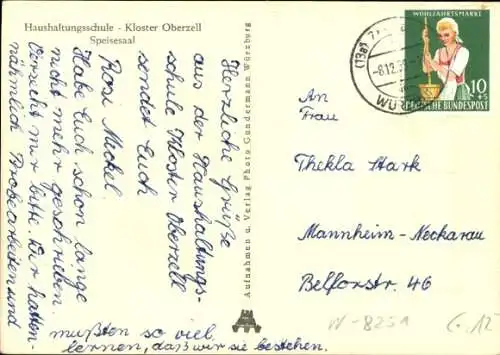 Haushaltungsschule - Kloster Oberzell
Speisesaal
Herzliche Grüße
aus der Haushaltungs-
schule Kloster Oberzell
sendet Euch
Rosi Meckel
Habe Euch schon lange
nicht mehr geschrieben.
Verzeiht mir bitte. Wir hatten
nähmlich Probearbeiten und
mußten so viel
lernen, daß wir sie bestehen.
Aufnahmen u. Verlag Photo Gundermann Würzburg
(13a)
-8.12.58
WÜR
WOHLFAHRTSMARKE
10
+5
DEUTSCHE BUNDESPOST
An
Frau
Thekla Stark
Mannheim-Neckarau
Belforstr. 46
W-8251